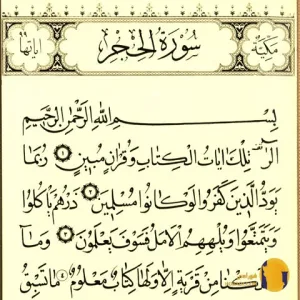 مكية سورة الحجر آياتها ٩٩
بسم الله الرحمن الرحيم
الر تلك ايات الكتاب وقران مبين ١ ربما
يود الذين كفروا لو كانوا مسلمين ٢ ذرهم ياكلوا
ويتمتعوا ويلههم الامل فسوف يعلمون ٣ وما
من قرية الا ولها كتاب معلوم ٤ ما تسبق